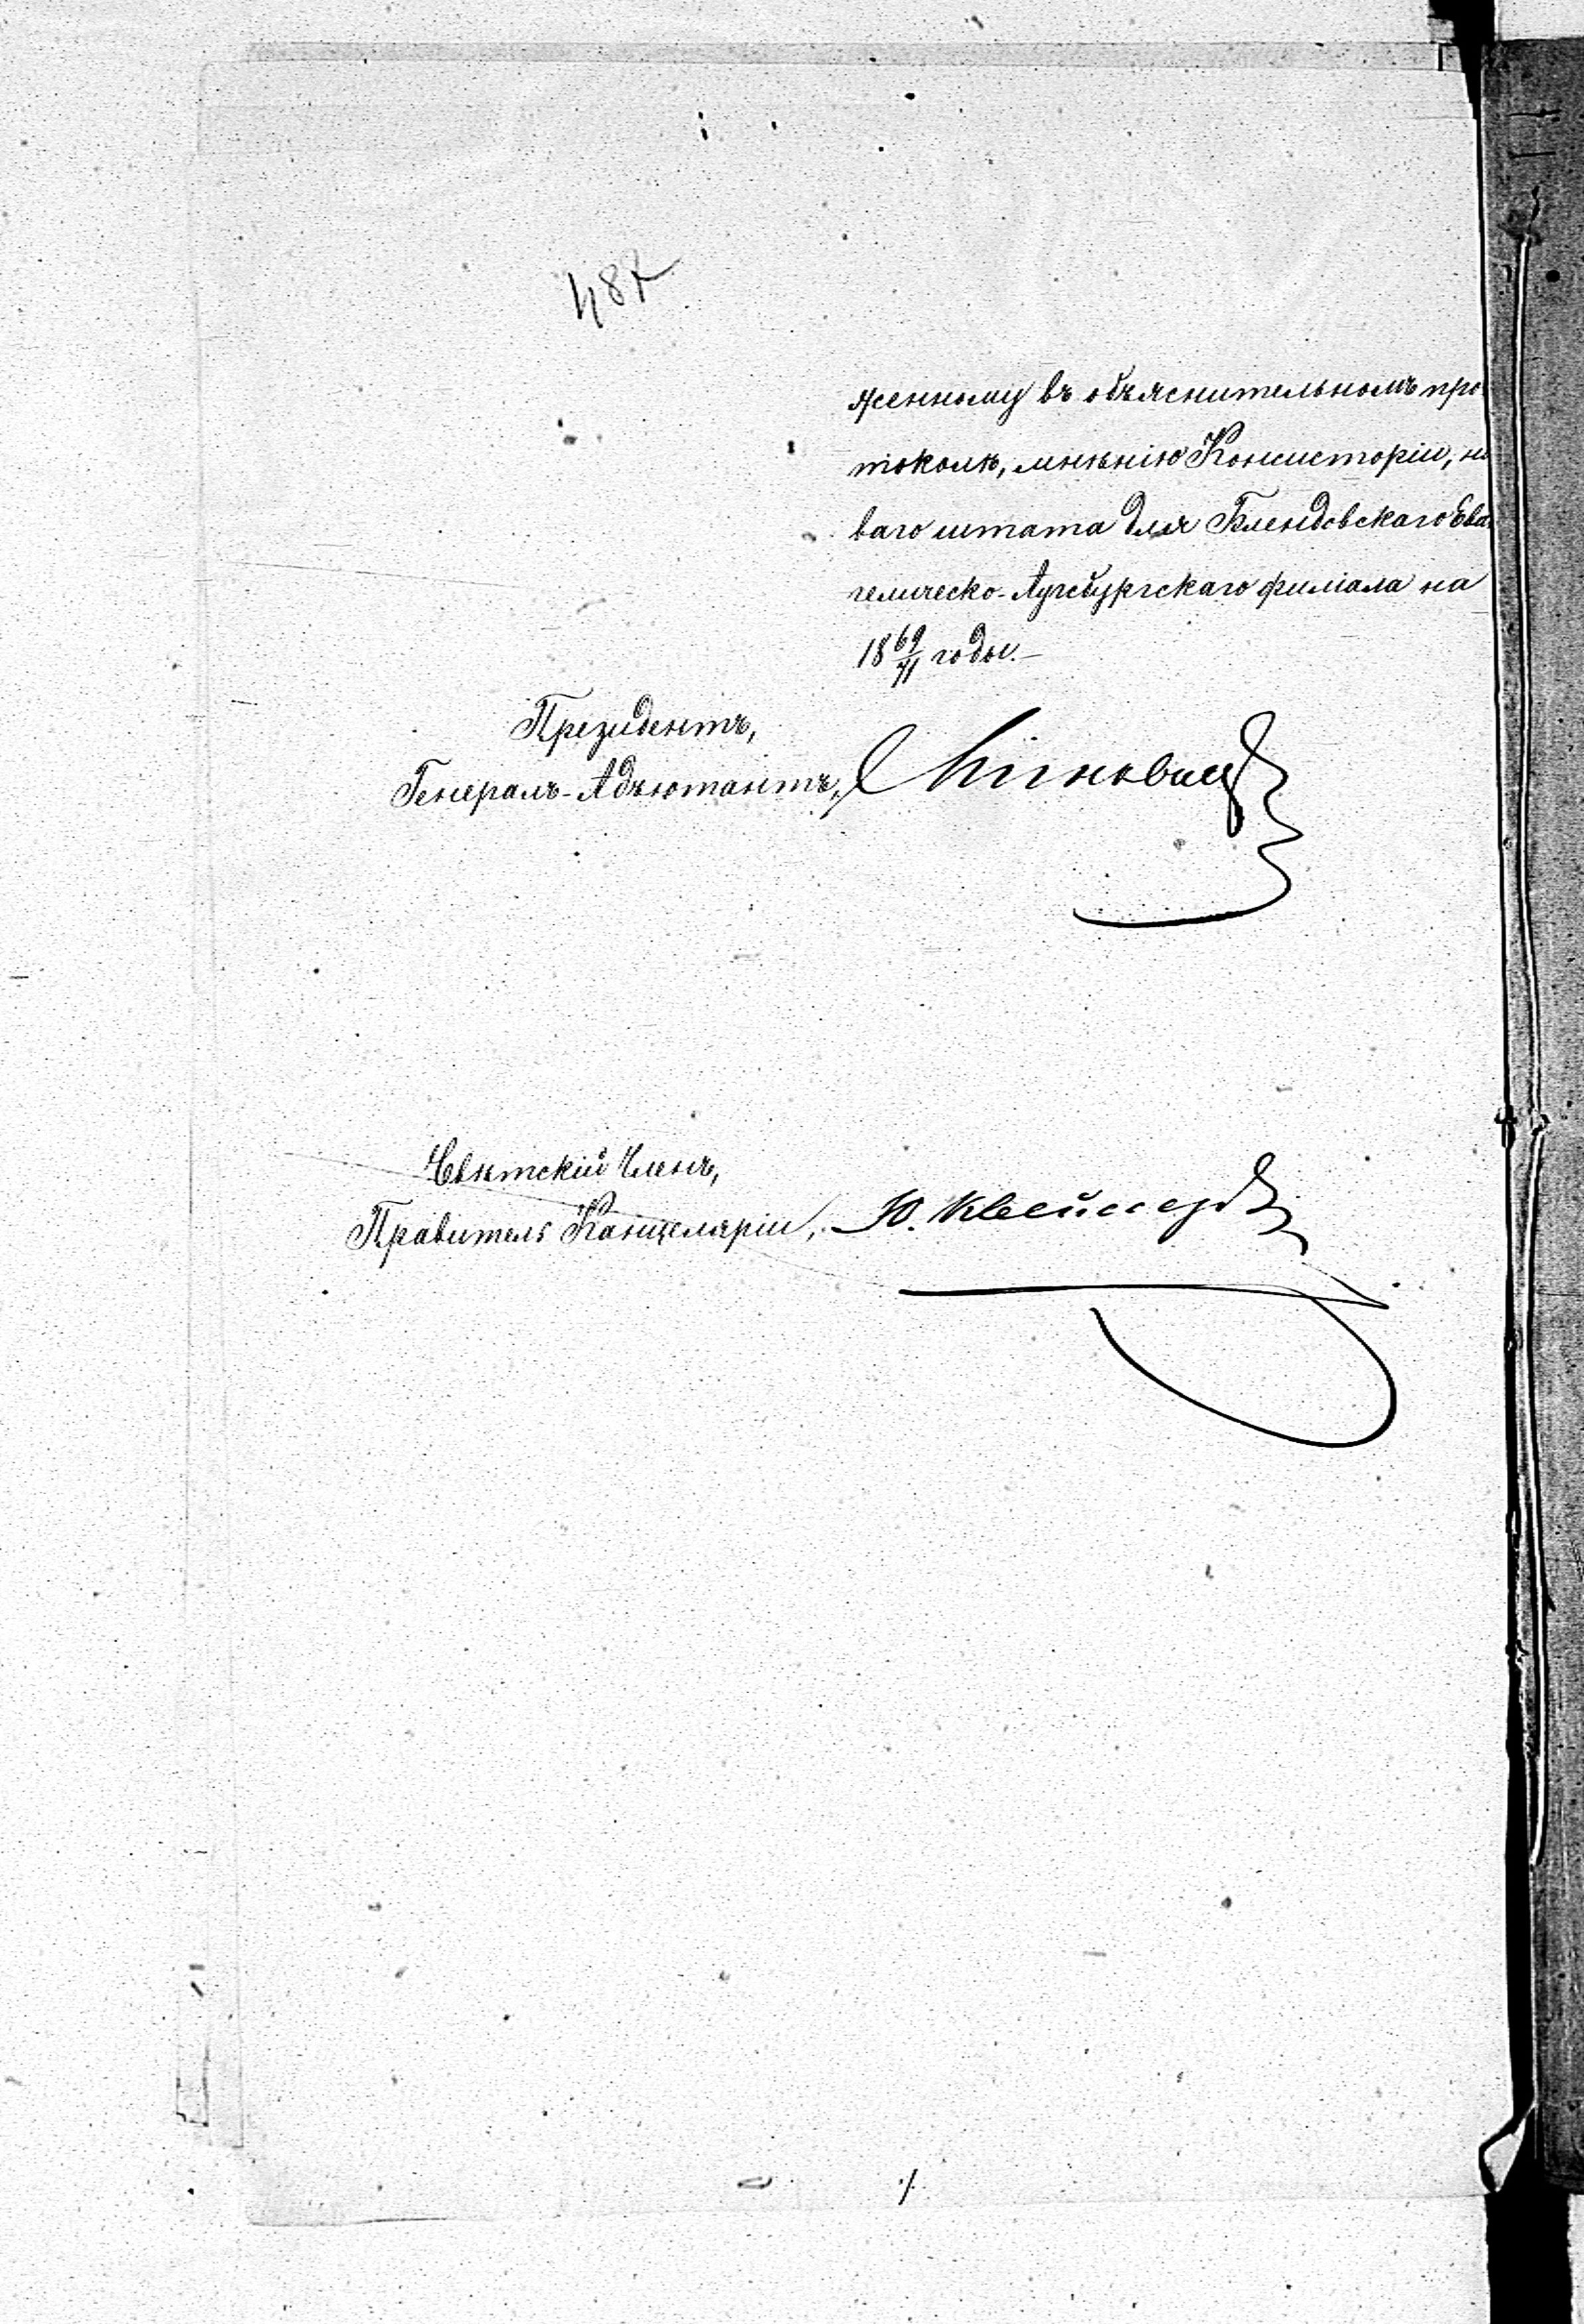 487
женному въ объяснительномъ про-
токолѣ, мнѣнію Консисторіи, но
ваго штата для Блендовскаго Еван
гелическо-Аугсбургскаго филіала на
18 69/71 годы.—
Президентъ,
Генералъ-Адъютантъ,
Свѣтскій Членъ,
Правитель Канцеляріи, Ю.